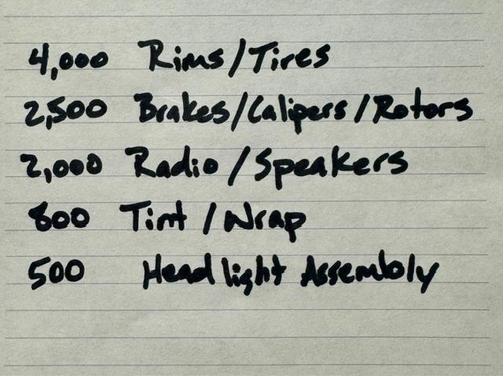 4,000 Rims/Tires
2,500 Brakes/Calipers/Rotors
2,000 Radio/Speakers
800 Tint/Wrap
500 Headlight Assembly